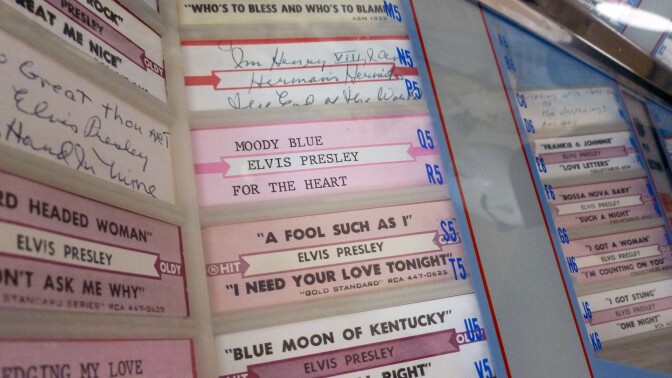 ROCK"
REAT ME NICE"
OLDY
Great thou ART
Elvis Presley
Hand In mine
RD HEADED WOMAN"
ELVIS PRESLEY
OLDY
N'T ASK ME WHY"
STANDARD SERIES" RCA 447-0
EDGING MY LOVE
"WHO'S TO BLESS AND WHO'S TO BLAM
A&M
M5
I'm Henry VIII, I am
Herman's Hermits
The End of the World
N5
P5
MOODY BLUE
ELVIS PRESLEY
FOR THE HEART
Q5
R5
"A FOOL SUCH AS I"
HIT
ELVIS PRESLEY
"I NEED YOUR LOVE TONIGHT"
"GOLD STANDARD" RCA 447-0625
S5
T5
"BLUE MOON OF KENTUCKY"
HIT
ELVIS PRESLEY
OL
RIGHT"
U5
V5
A6
C6
D6
"FRANKIE & JOHNNIE"
ELVIS PRESLEY
"LOVE LETTERS"
E6
"BOSSA NOVA BABY"
ELVIS PRESLEY
"SUCH A NIGHT"
F6
G6
"I GOT A WOMAN"
ELVIS PRESLEY
"I'M COUNTING ON YOU"
H6
"I GOT STUNG"
ELVIS PRESLEY
"ONE NIGHT"
J6
K6